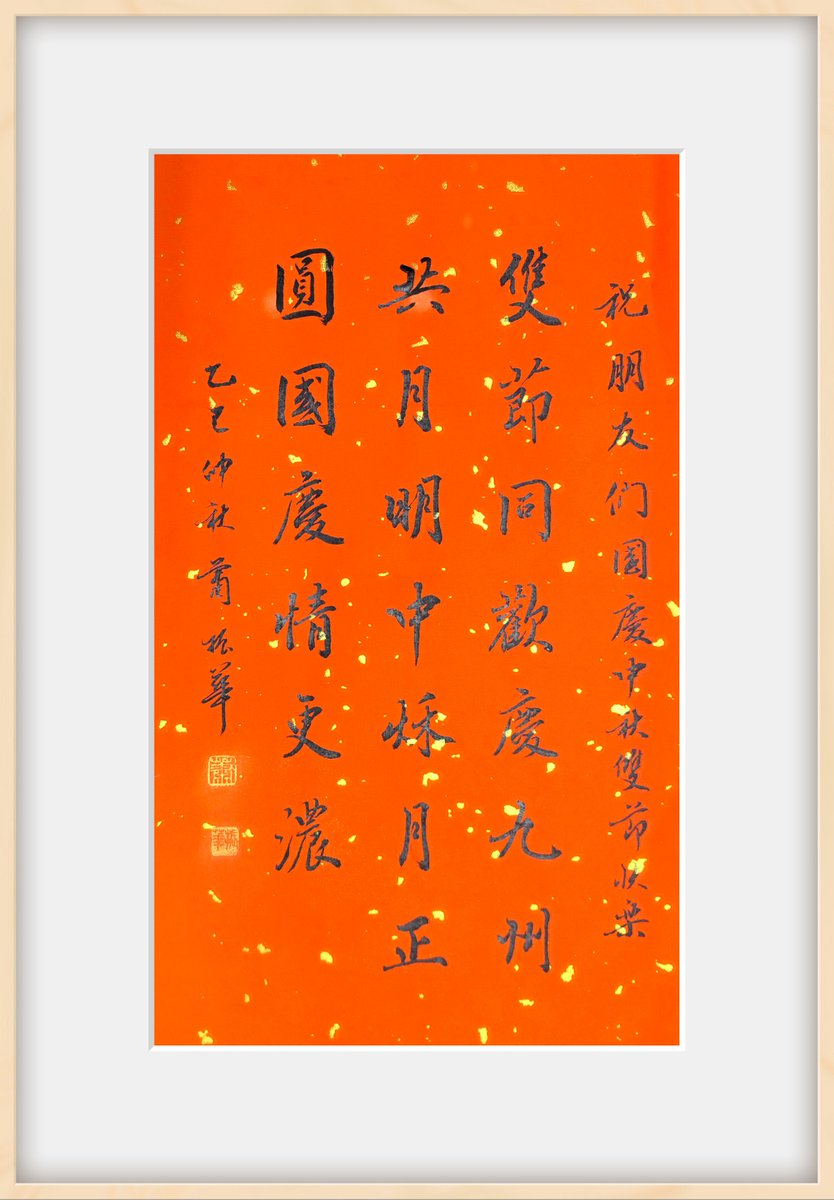 祝朋友們國慶中秋雙節快樂
雙節同歡慶九州
共月明中秋月正
圓國慶情更濃
乙巳仲秋蕭振華